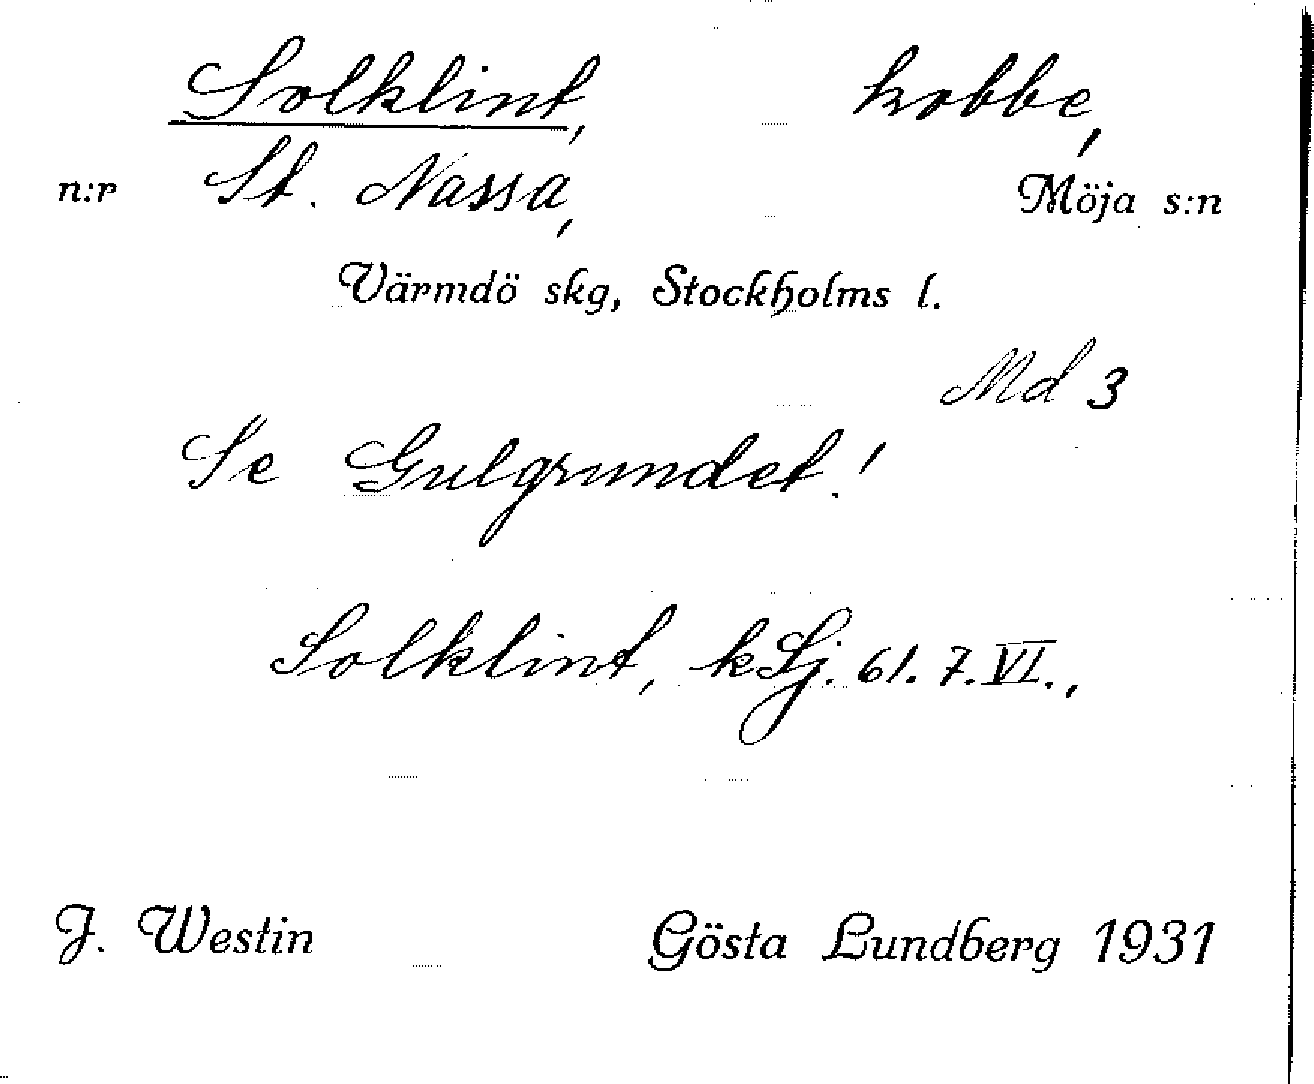 Solklint, kobbe,
n:r St. Nassa, Möja s:n
Värmdö skg, Stockholms l.
Md 3
Se Gulgrundet!
Solklint, k Sj. 61. 7. VI.,
J. Westin Gösta Lundberg 1931